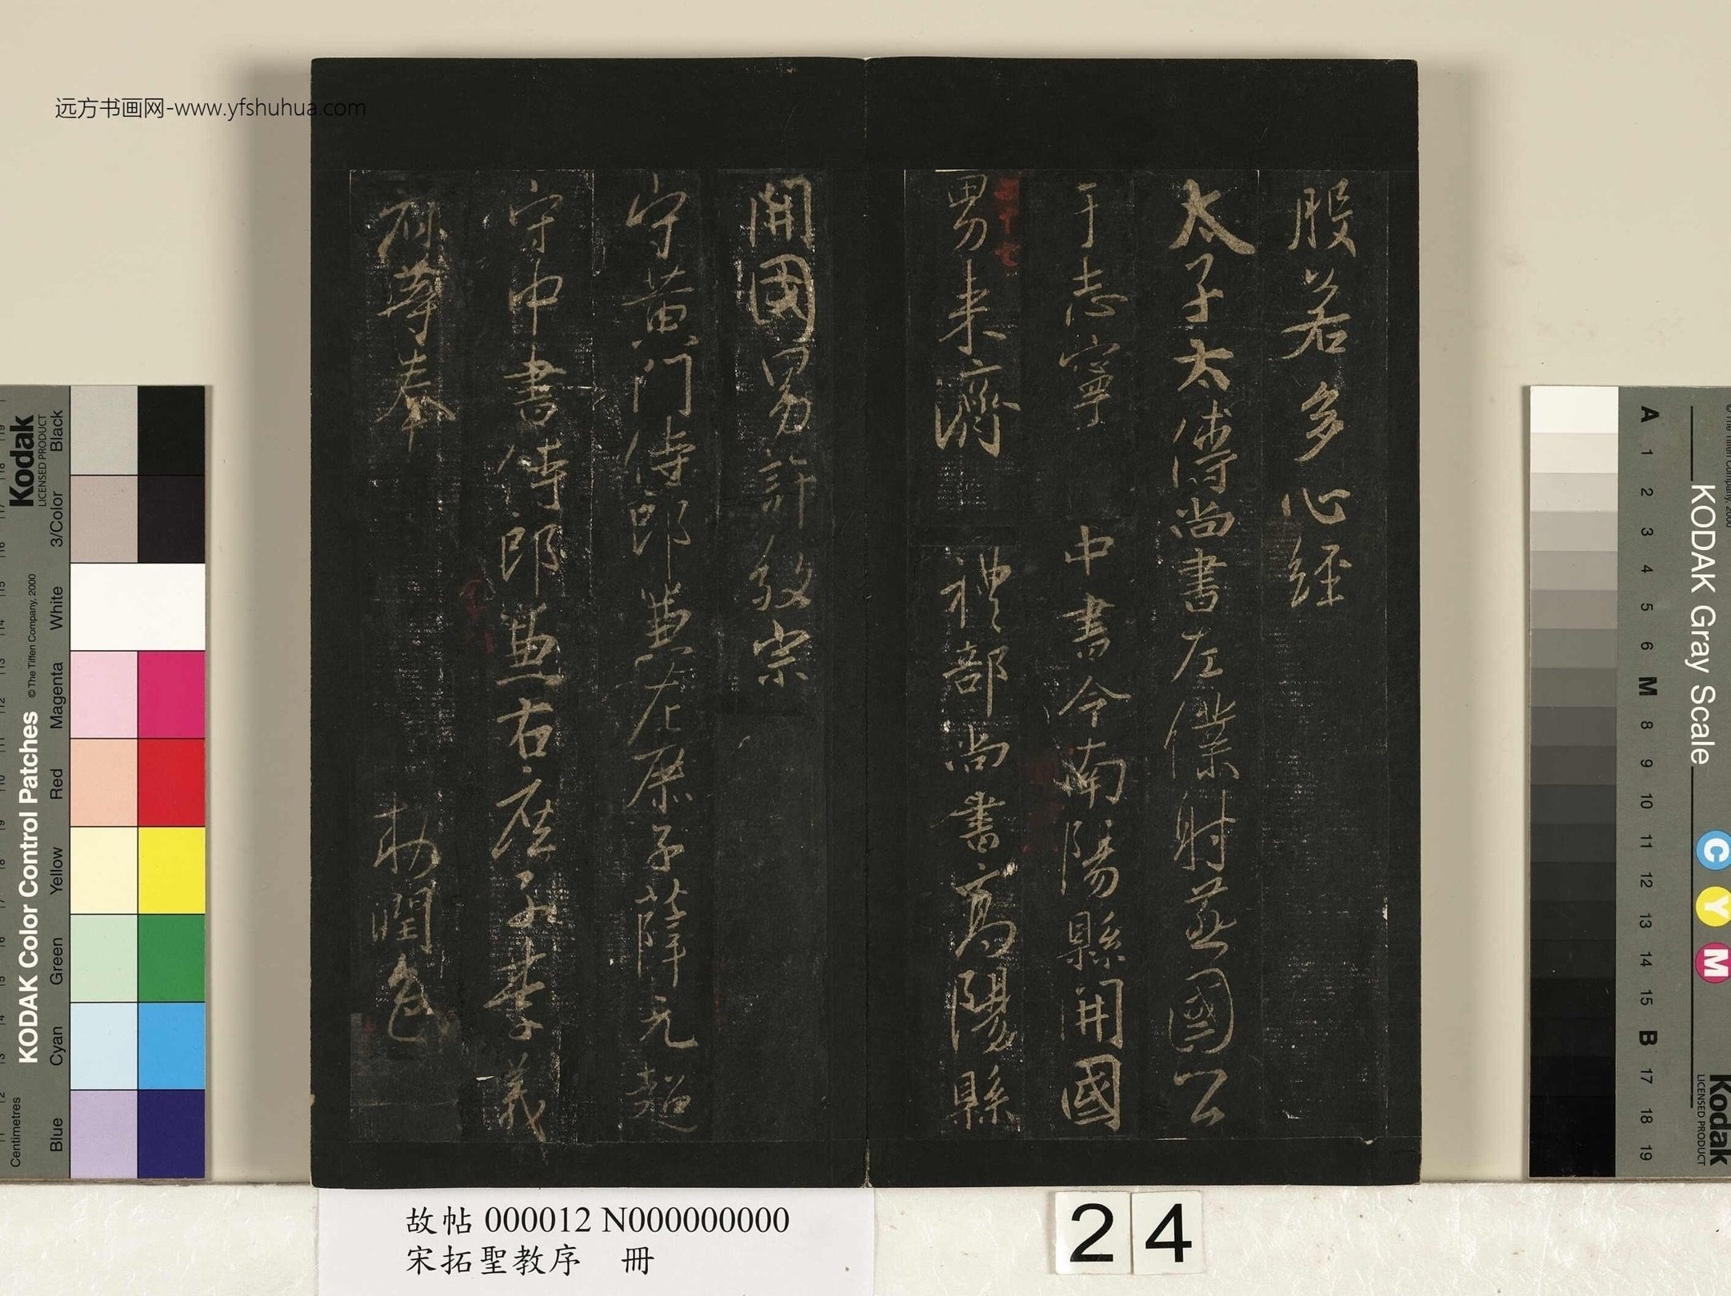 远方书画网-www.yfshuhua.com
般若多心経
太子太傅尚書左僕射燕國公
于志寧 中書令南陽縣開國
男来濟 禮部尚書高陽縣
開國男許敬宗
守黄門侍郎兼左庶子薛元超
守中書侍郎兼右庶子李義
府等奉 勑潤色
故帖 000012 N000000000
宋拓聖教序 冊
24
Kodak
LICENSED PRODUCT
KODAK Color Control Patches
© The Tiffen Company, 2000
Centimetres
Black
3/Color
White
Magenta
Red
Yellow
Green
Cyan
Blue
KODAK Gray Scale
C
Y
M
A
1
2
3
4
5
6
M
8
9
10
11
12
13
14
15
B
17
18
19
Kodak
LICENSED PRODUCT